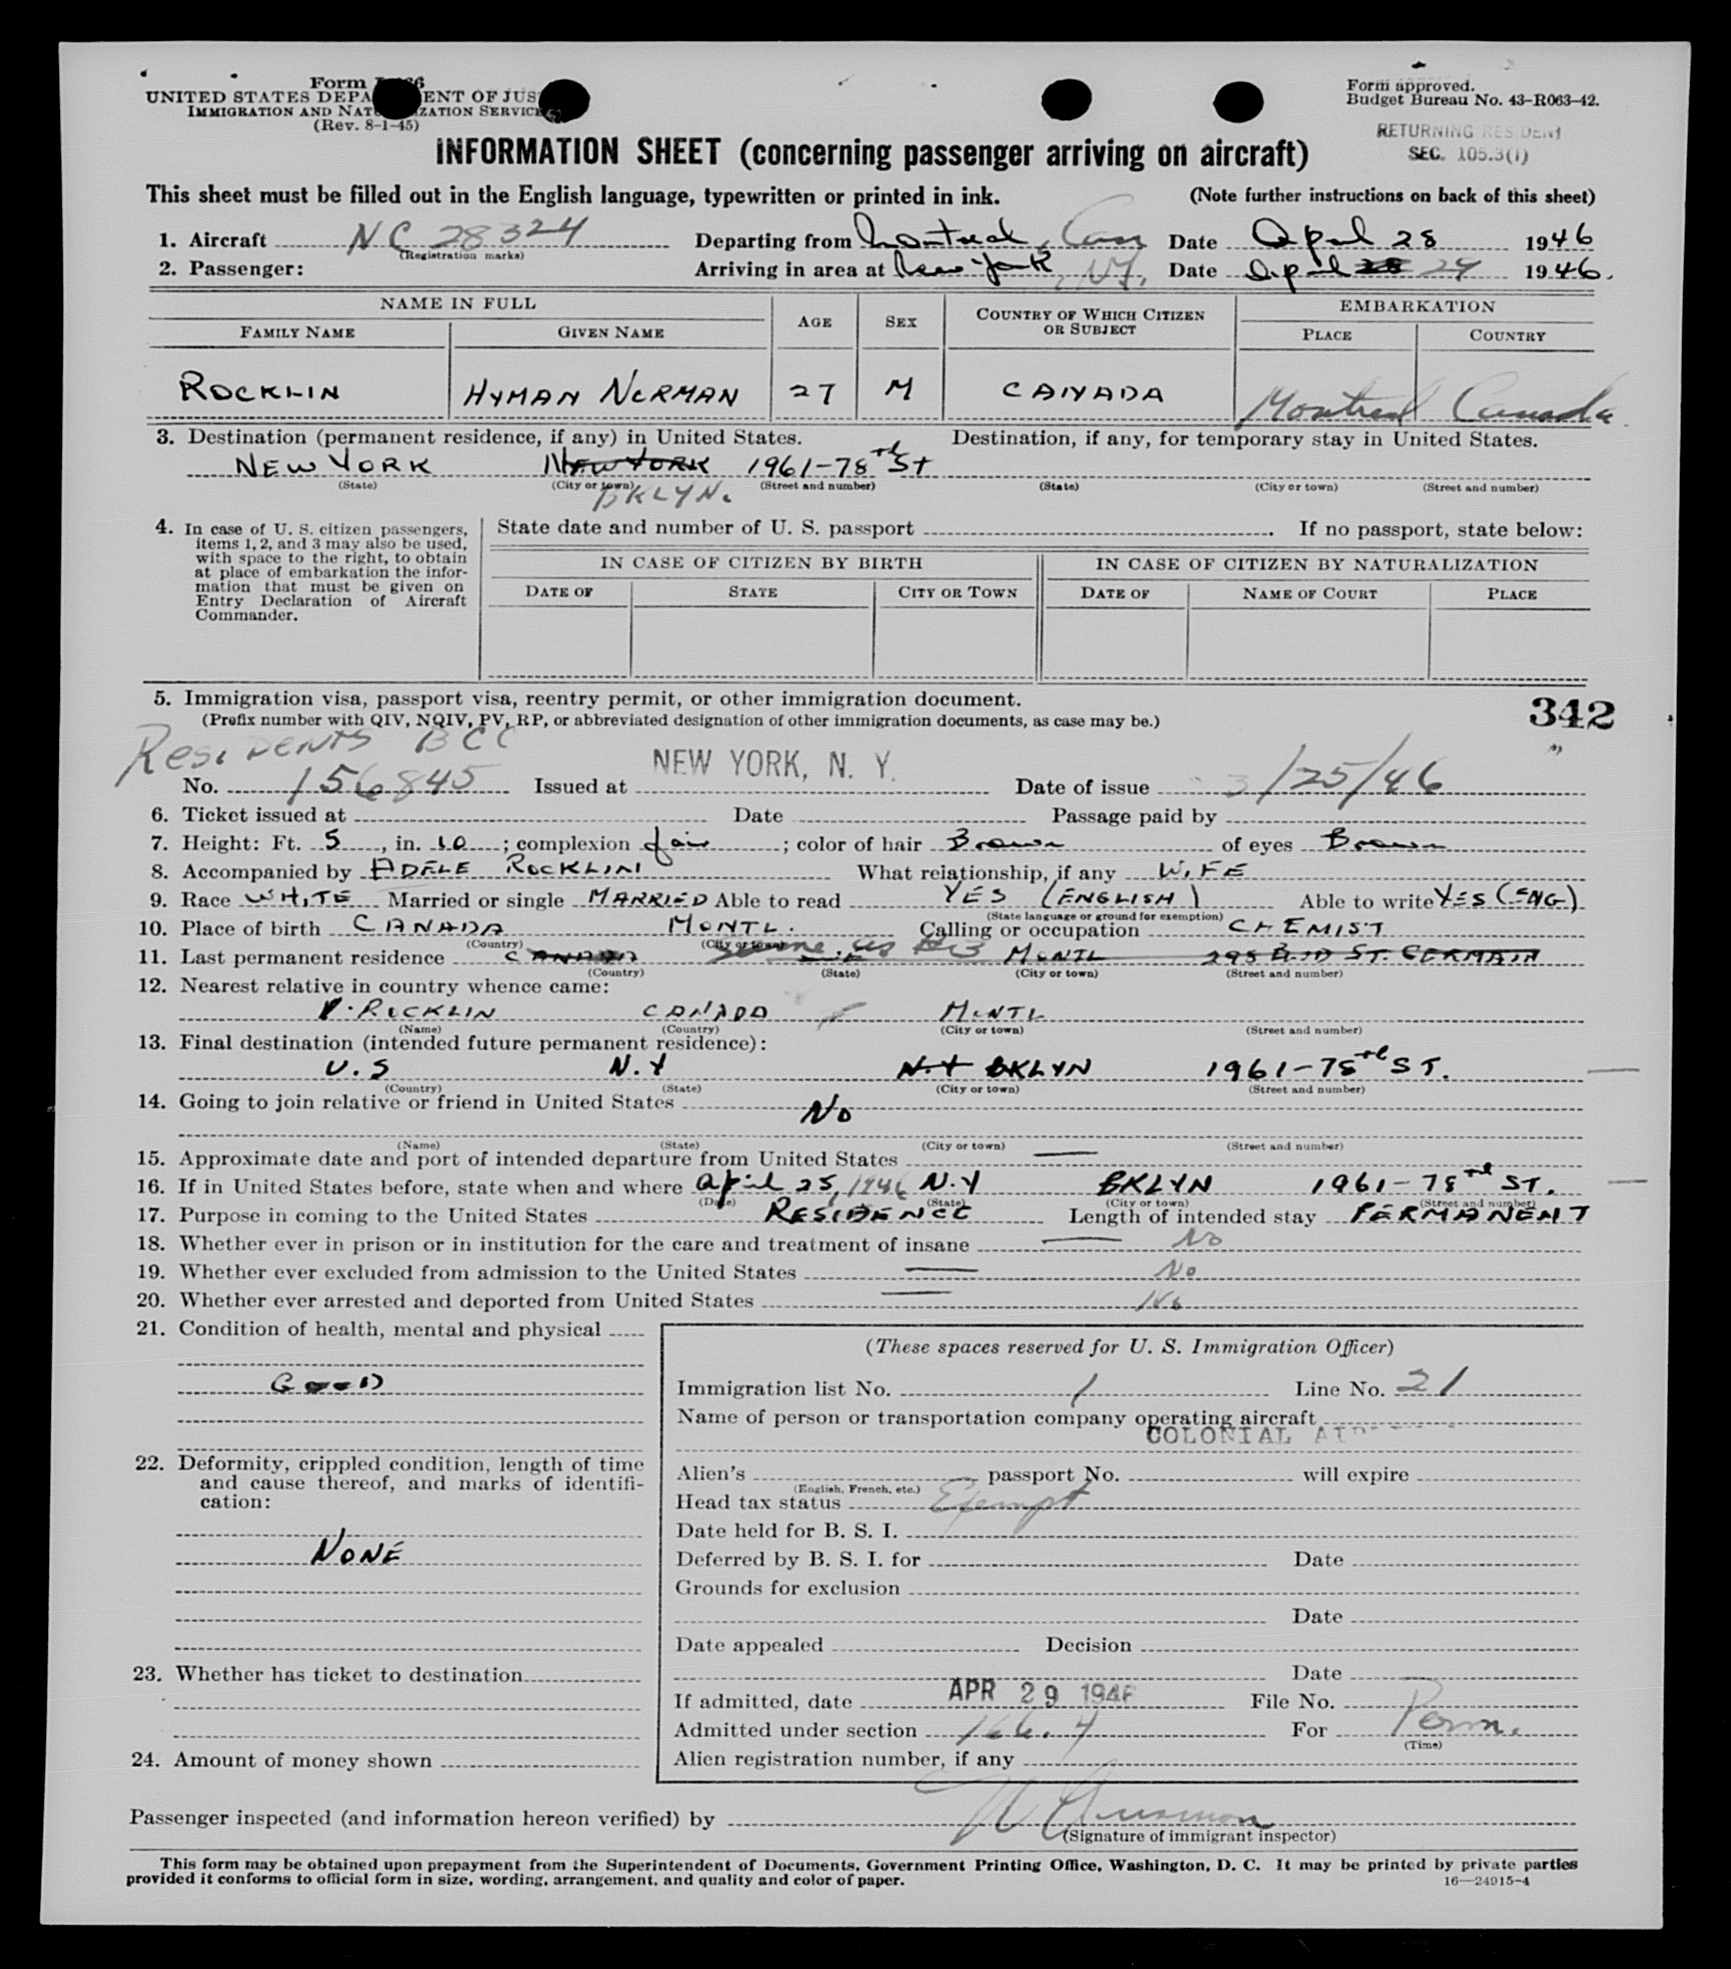 Form I-466
UNITED STATES DEPARTMENT OF JUSTICE
IMMIGRATION AND NATURALIZATION SERVICE
(Rev. 8-1-45)
Form approved.
Budget Bureau No. 43-R063-42.
RETURNING RESIDENT
SEC. 105.3(1)
INFORMATION SHEET (concerning passenger arriving on aircraft)
This sheet must be filled out in the English language, typewritten or printed in ink. (Note further instructions on back of this sheet)
1. Aircraft NC 28324 Departing from Montreal, Can Date April 28 1946
(Registration marks)
2. Passenger: Arriving in area at New York, N.Y. Date April 28 29 1946.
NAME IN FULL AGE SEX COUNTRY OF WHICH CITIZEN OR SUBJECT EMBARKATION
FAMILY NAME GIVEN NAME PLACE COUNTRY
ROCKLIN HYMAN NORMAN 27 M CANADA Montreal Canada
3. Destination (permanent residence, if any) in United States. Destination, if any, for temporary stay in United States.
NEW YORK NEW YORK 1961-78th St
(State) (City or town) (Street and number) (State) (City or town) (Street and number)
BKLYN.
4. In case of U. S. citizen passengers, items 1, 2, and 3 may also be used, with space to the right, to obtain at place of embarkation the information that must be given on Entry Declaration of Aircraft Commander.
State date and number of U. S. passport . If no passport, state below:
IN CASE OF CITIZEN BY BIRTH IN CASE OF CITIZEN BY NATURALIZATION
DATE OF STATE CITY OR TOWN DATE OF NAME OF COURT PLACE
5. Immigration visa, passport visa, reentry permit, or other immigration document.
(Prefix number with QIV, NQIV, PV, RP, or abbreviated designation of other immigration documents, as case may be.)
342
RESIDENTS BCC
No. 156845 Issued at NEW YORK, N. Y. Date of issue 3/25/46
6. Ticket issued at Date Passage paid by
7. Height: Ft. 5, in. 10; complexion fair; color of hair Brown of eyes Brown
8. Accompanied by ADELE ROCKLIN What relationship, if any WIFE
9. Race WHITE Married or single MARRIED Able to read YES (ENGLISH) Able to write YES (ENG)
(State language or ground for exemption)
10. Place of birth CANADA MONTL. Calling or occupation CHEMIST
(Country) (City or town)
11. Last permanent residence CANADA same as #13 MONTL 295 ST. GERMAIN
(Country) (State) (City or town) (Street and number)
12. Nearest relative in country whence came:
ROCKLIN CANADA MONTL
(Name) (Country) (City or town) (Street and number)
13. Final destination (intended future permanent residence):
U.S N.Y N.Y BKLYN 1961-78th ST.
(Country) (State) (City or town) (Street and number)
14. Going to join relative or friend in United States NO
(Name) (State) (City or town) (Street and number)
15. Approximate date and port of intended departure from United States —
16. If in United States before, state when and where April 25, 1946 N.Y BKLYN 1961-78th ST.
(Date) (State) (City or town) (Street and number)
17. Purpose in coming to the United States RESIDENCE Length of intended stay PERMANENT
18. Whether ever in prison or in institution for the care and treatment of insane — No
19. Whether ever excluded from admission to the United States — No
20. Whether ever arrested and deported from United States — No
21. Condition of health, mental and physical
GOOD
22. Deformity, crippled condition, length of time and cause thereof, and marks of identification:
NONE
23. Whether has ticket to destination
24. Amount of money shown
(These spaces reserved for U. S. Immigration Officer)
Immigration list No. 1 Line No. 21
Name of person or transportation company operating aircraft
COLONIAL
Alien's passport No. will expire
(English, French, etc.)
Head tax status Exempt
Date held for B. S. I.
Deferred by B. S. I. for Date
Grounds for exclusion
Date
Date appealed Decision
Date
If admitted, date APR 29 1946 File No.
Admitted under section 166.4 For Perm.
(Time)
Alien registration number, if any
Passenger inspected (and information hereon verified) by
(Signature of immigrant inspector)
This form may be obtained upon prepayment from the Superintendent of Documents, Government Printing Office, Washington, D. C. It may be printed by private parties
provided it conforms to official form in size, wording, arrangement, and quality and color of paper.
16—24915-4